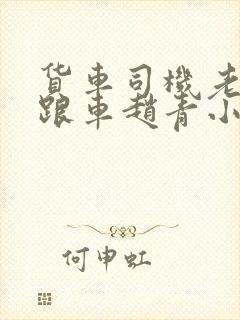 货车司機老
跟車趙青小
何申虹